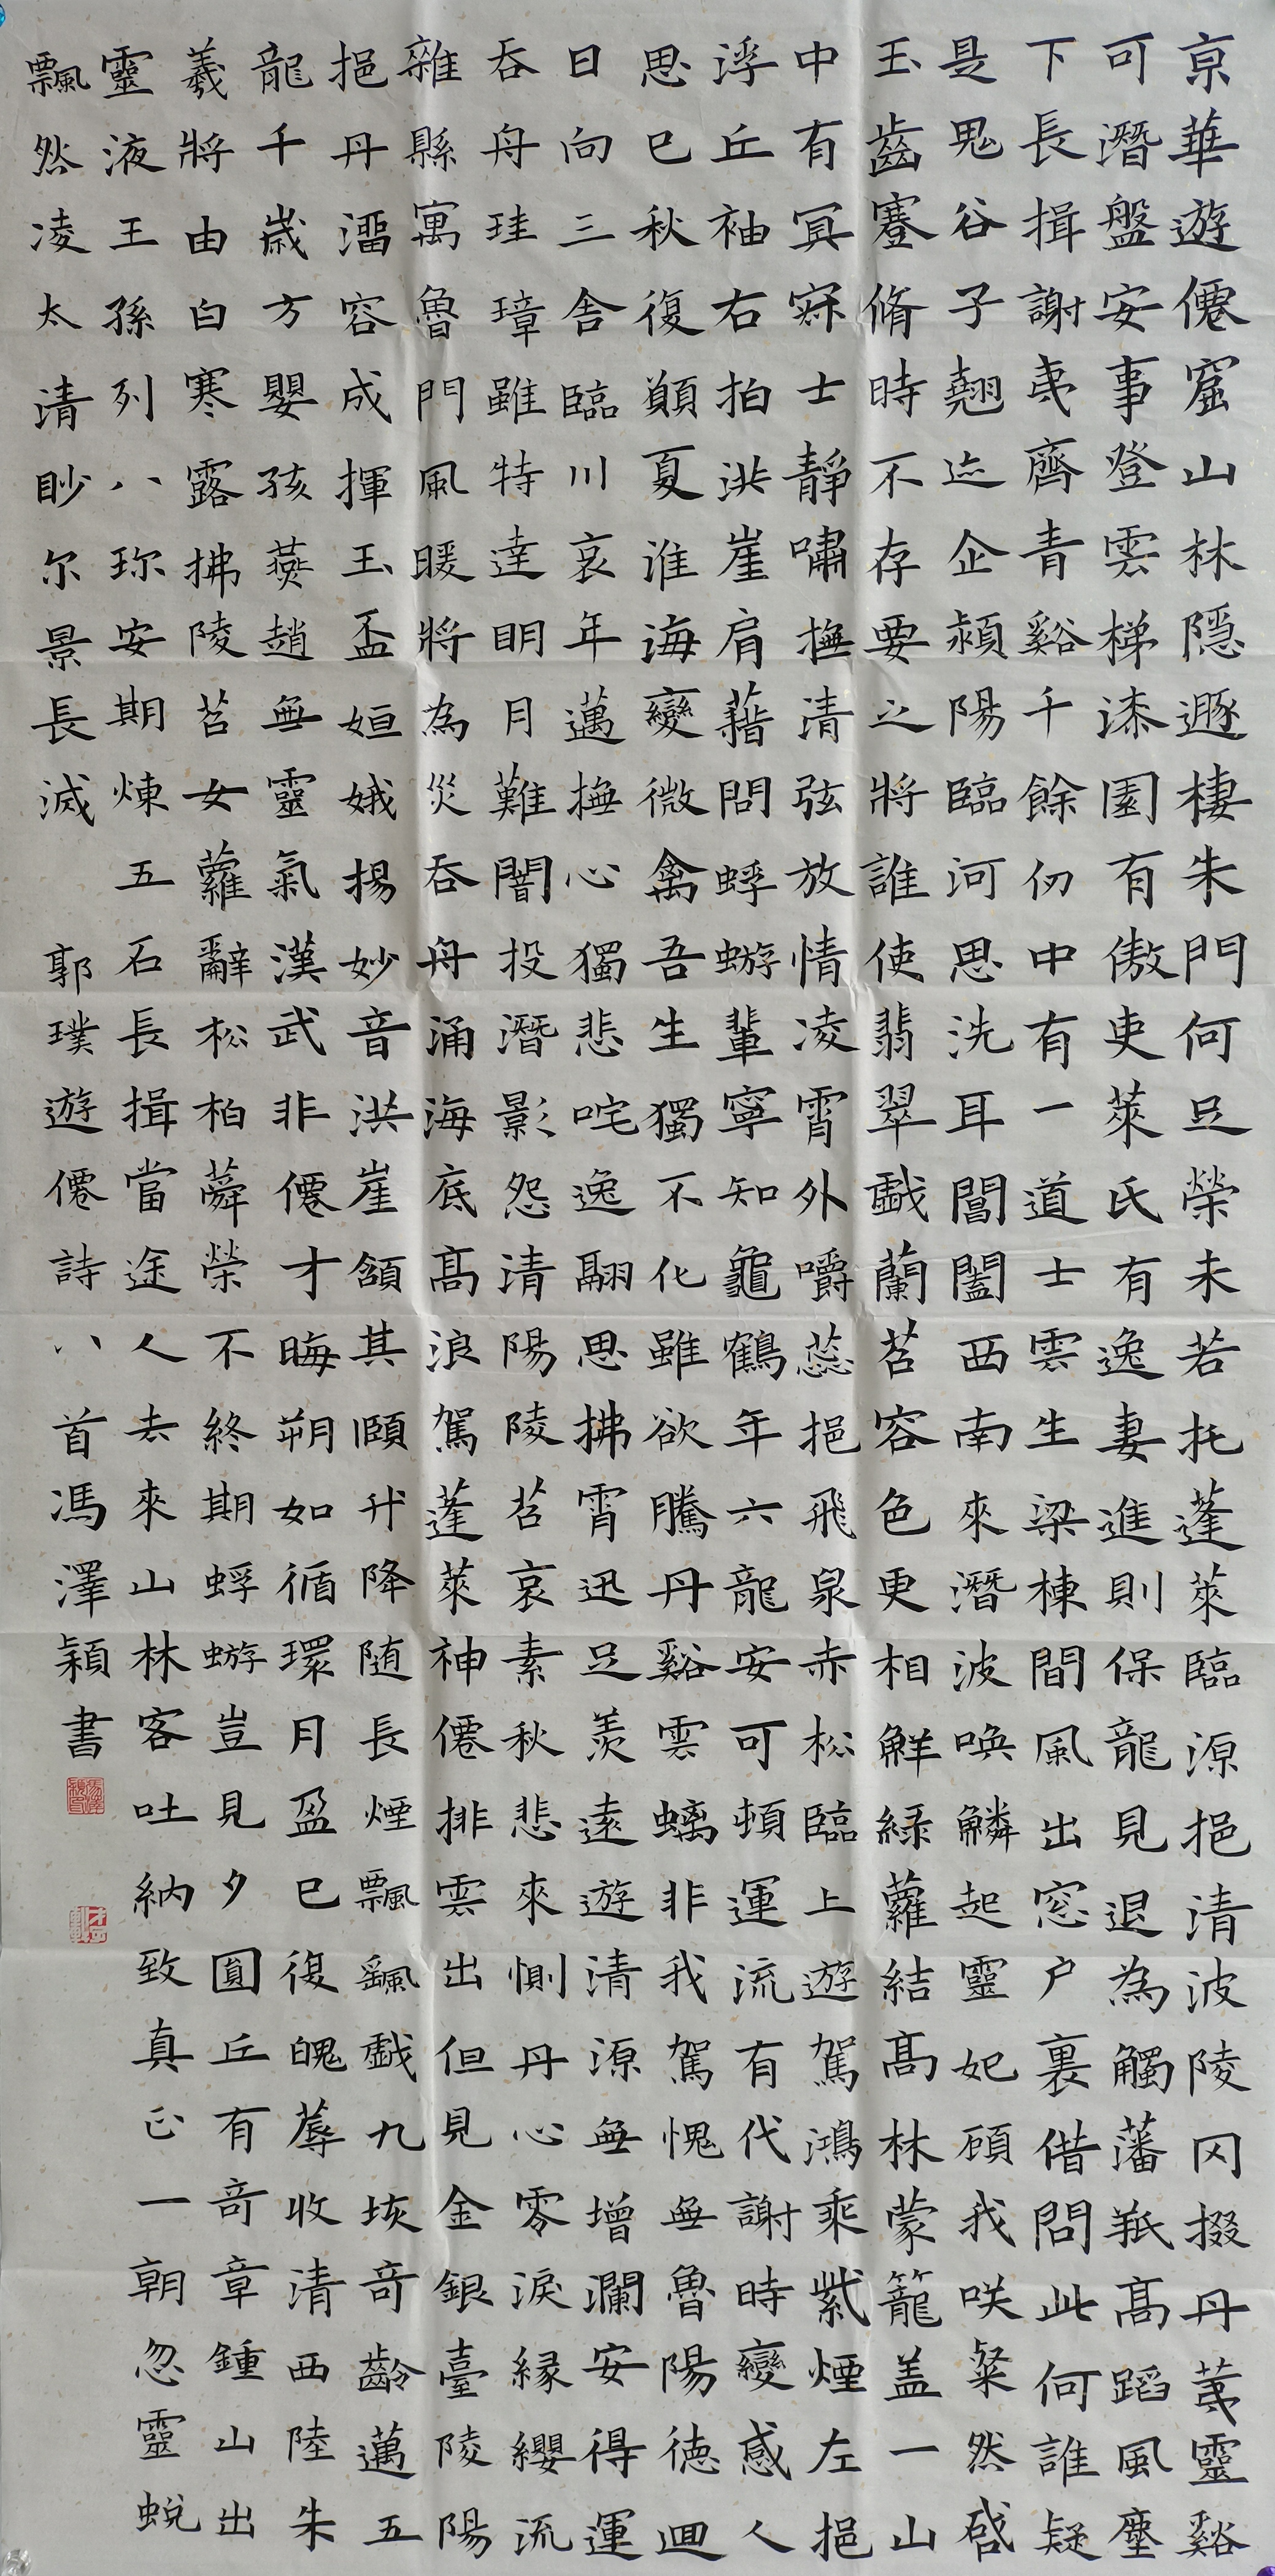 京華遊僊窟山林隱遯棲朱門何足榮未若托蓬萊臨源挹清波陵冈掇丹荑靈谿
可潛盤安事登雲梯漆園有傲吏萊氏有逸妻進則保龍見退為觸藩羝高蹈風塵
下長揖謝夷齊青谿千餘仞中有一道士雲生梁棟間風出窓户裏借問此何誰疑
是鬼谷子翹迹企潁陽臨河思洗耳閶闔西南來潛波喚鱗起靈妃顧我咲粲然啓
玉齒蹇脩時不存要之將誰使翡翠戲蘭苕容色更相鮮緑蘿結高林蒙籠盖一山
中有冥寂士靜嘯撫清弦放情凌霄外嚼蕊挹飛泉赤松臨上遊駕鴻乘紫煙左挹
浮丘袖右拍洪崖肩藉問蜉蝣輩寧知龜鶴年六龍安可頓運流有代謝時變感人
思已秋復願夏淮海變微禽吾生獨不化雖欲騰丹谿雲螭非我駕愧無魯陽德迴
日向三舍臨川哀年邁撫心獨悲咤逸翮思拂霄迅足羨遠遊清源無增瀾安得運
吞舟珪璋雖特達明月難闇投潛影怨清陽陵苕哀素秋悲來惻丹心零淚緣纓流
雜縣寓魯門風暖將為災吞舟涌海底高浪駕蓬萊神僊排雲出但見金銀臺陵陽
挹丹溜容成揮玉盃姮娥揚妙音洪崖頷其頤升降随長煙飄颻戲九垓奇齡邁五
龍千歲方嬰孩燕趙無靈氣漢武非僊才晦朔如循環月盈已復魄蓐收清西陸朱
羲將由白寒露拂陵苕女蘿辭松柏蕣榮不終期蜉蝣豈見夕圓丘有奇章鍾山出
靈液王孫列八珎安期煉五石長揖當途人去來山林客吐納致真正一朝忽靈蛻
飄然凌太清眇尔景長滅 郭璞遊僊詩八首馮澤穎書